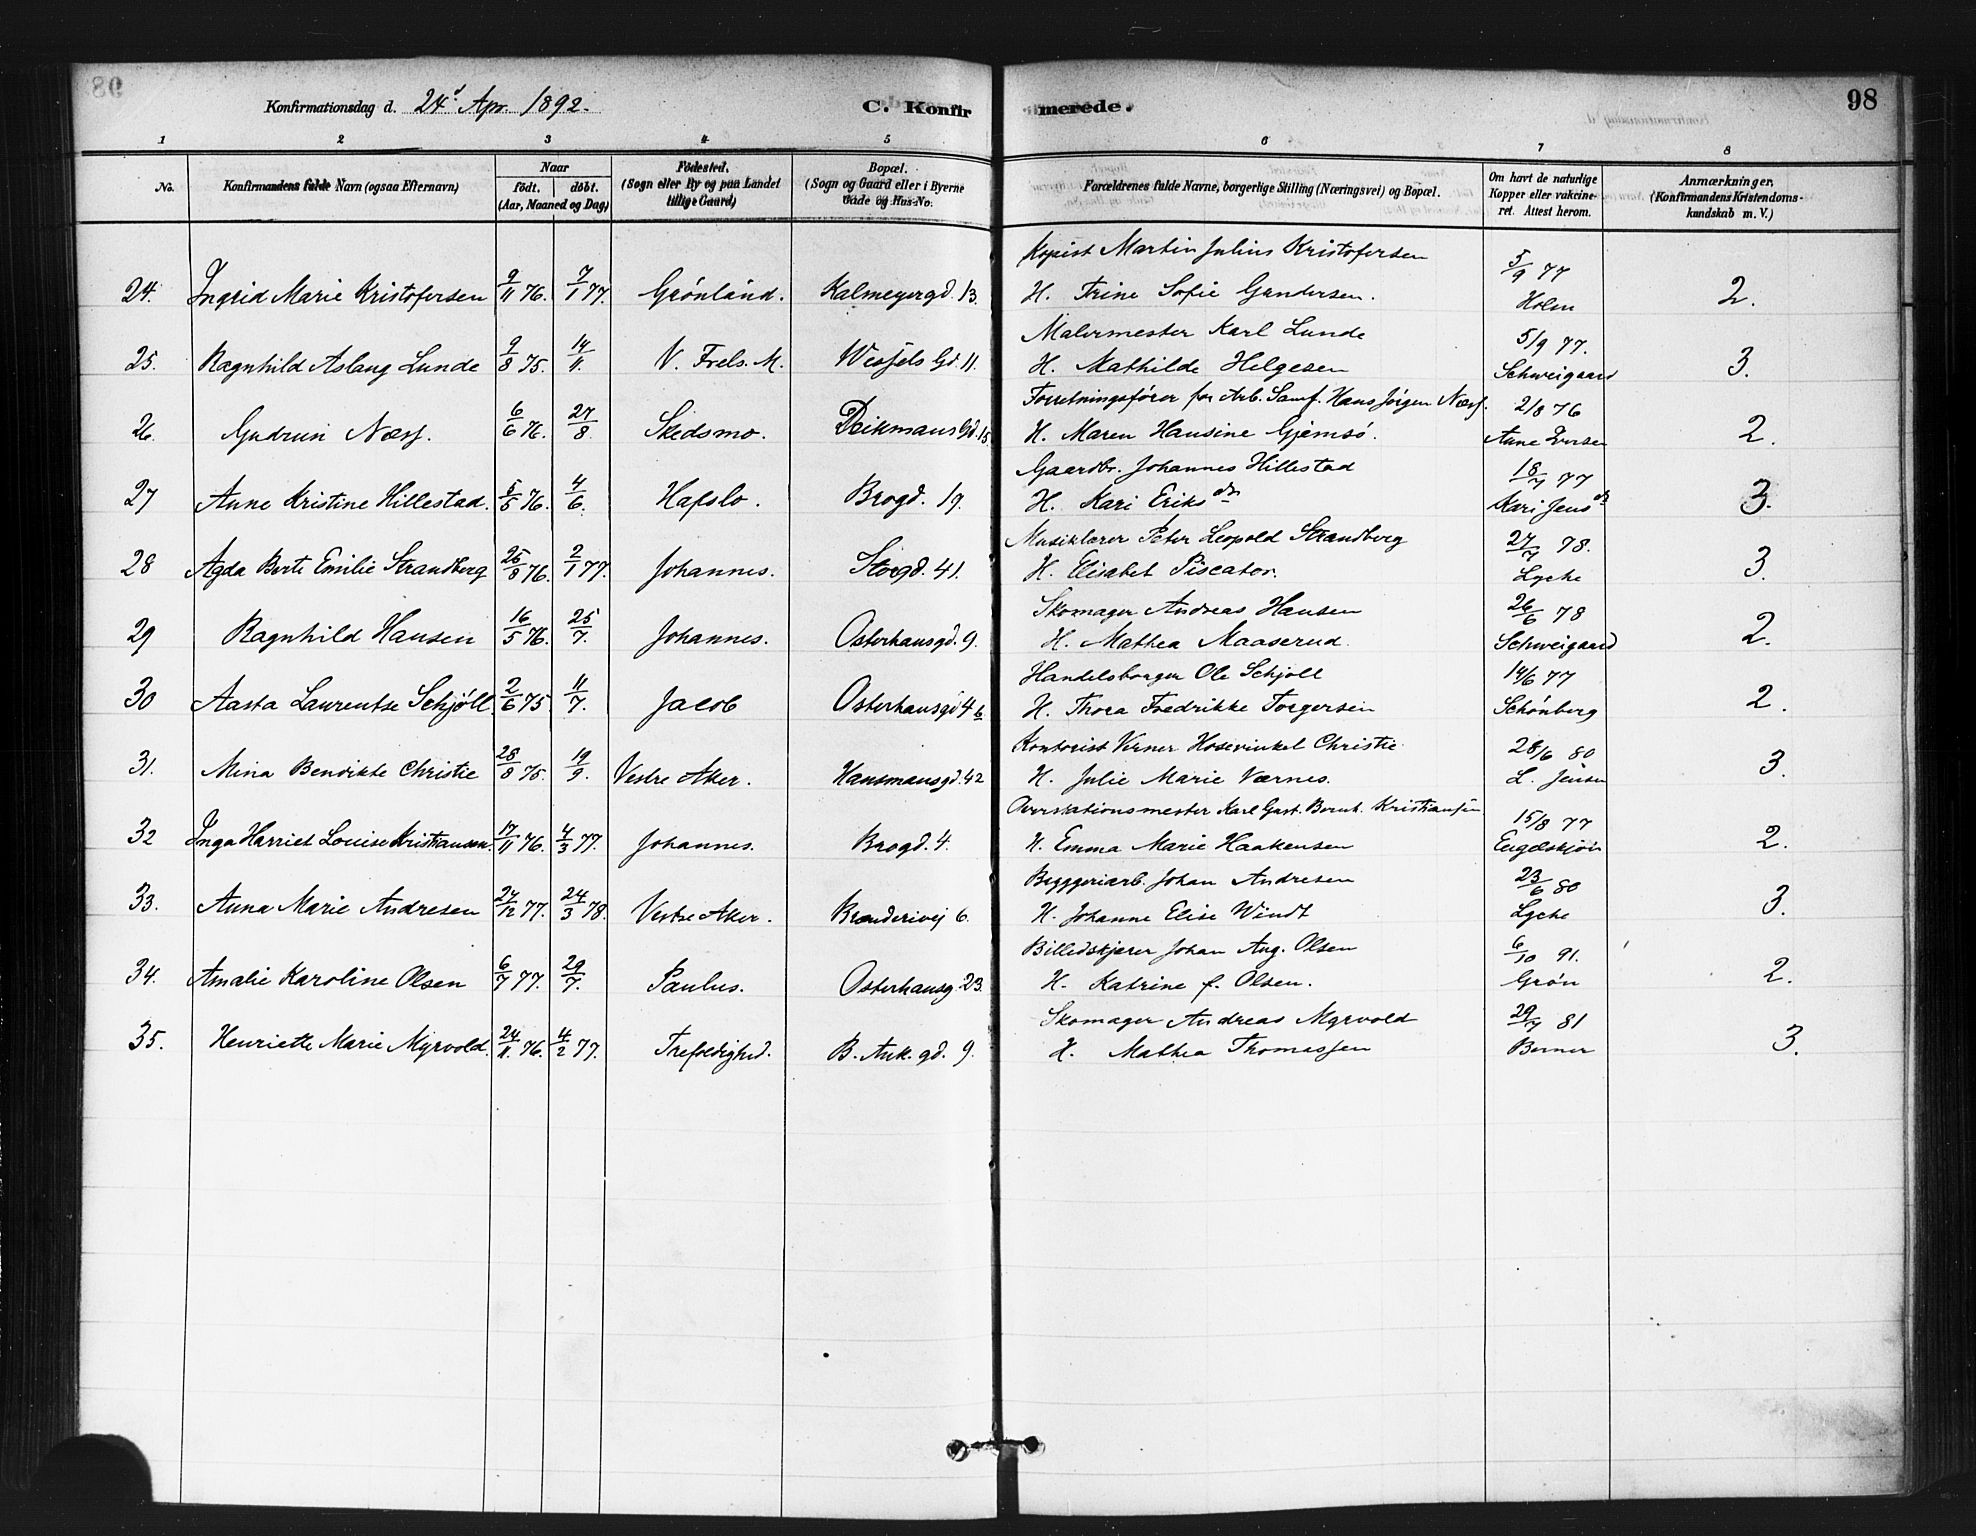 98
Konfirmationsdag d. 24d Apr. 1892.
C. Konfirmerede.
98
1 2 3 4 5 6 7 8
No. Konfirmandens fulde Navn (ogsaa Efternavn) Naar født. døbt. (Aar, Maaned og Dag) Fødested. (Sogn eller By og paa Landet tillige Gaard) Bopæl. (Sogn og Gaard eller i Byerne Gade og Hus-No. Forældrenes fulde Navne, borgerlige Stilling (Næringsvei) og Bopæl. Om havt de naturlige Kopper eller vakcineret. Attest herom. Anmærkninger, (Konfirmandens Kristendomskundskab m. V.)
Kopist Martin Julius Kristofersen 5/9 77
24. Ingrid Marie Kristofersen 9/11 76. 7/1 77. Grønland. Kalmeyergd. 13. H. Trine Sofie Gundersen. Holm 2.
Malermester Karl Lunde 5/9 77.
25. Ragnhild Aslaug Lunde 9/8 75. 14/11. V. Frels. M. Wessels Gd. 11. H. Mathilde Helgesen Schweigaard 3.
Forretningsfører for Arb. Samf. Hans Jørgen Næss. 2/8 76
26. Gudrun Næss. 6/6 76. 27/8. Skedsmo. Deikmans Gd. 15 H. Maren Hansine Gjemsø. Anne Iversen 2.
Gaardbr. Johannes Hillestad 18/7 77
27 Anne Kristine Hillestad. 5/5 76. 4/6. Hafslo. Brogd. 19. H. Kari Eriksdn Kari Jensdn 3.
Musiklærer Peter Leopold Strandberg 27/7 78.
28 Agda Berti Emilie Strandberg 25/8 76. 2/1 77. Johannes. Storgd. 41. H. Elisabet Piscator. Lyche 3.
Skomager Andreas Hansen 26/6 78
29 Ragnhild Hansen 16/5 76. 25/7. Johannes. Osterhausgd. 9. H. Mathea Maaserud. Schweigaard 2.
Handelsborger Ole Schjøll 14/6 77
30 Aasta Laurentse Schjøll. 2/6 75 11/7. Jacob Osterhausgd 4 b. H. Thora Fredrikke Torgersen Schønberg 2.
Kontorist Verner Hosevinkel Christie 28/6 80
31. Mina Bendikte Christie 28/8 75. 19/9. Vestre Aker. Hausmansgd. 42 H. Julie Marie Værnes. L. Jensen 3.
Overstationsmester Karl Gust. Bernh. Kristiansen 15/8 77
32 Inga Harriet Louise Kristiansen. 17/11 76. 4/3 77. Johannes. Brogd. 4. H. Emma Marie Haakensen Engelskjøn 2.
Bryggeriarb. Johan Andresen 23/6 80
33. Anna Marie Andresen 27/12 77. 24/3 78. Vestre Aker. Brænderivej 6. H. Johanne Elise Windt Lyche 3.
Billedskjærer Johan Aug. Olsen 6/10 91.
34. Amalie Karoline Olsen 6/7 77. 29/7. Paulus. Osterhausg. 23. H. Katrine f. Olsen. Grøn 2.
Skomager Andreas Myrvold 29/7 81
35. Henriette Marie Myrvold. 24/11 76. 4/2 77. Trefoldighed. B. Ank. gd. 9. H. Mathea Thomassen Berner 3.